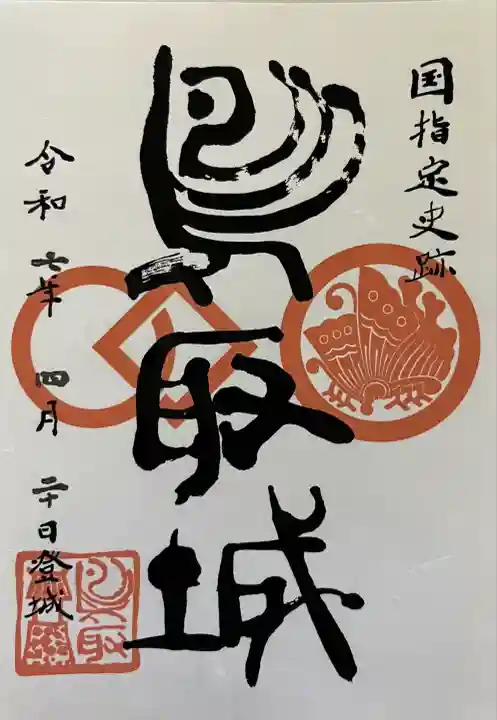 国指定史跡
鳥取城
令和七年 四月 二十日登城
鳥取